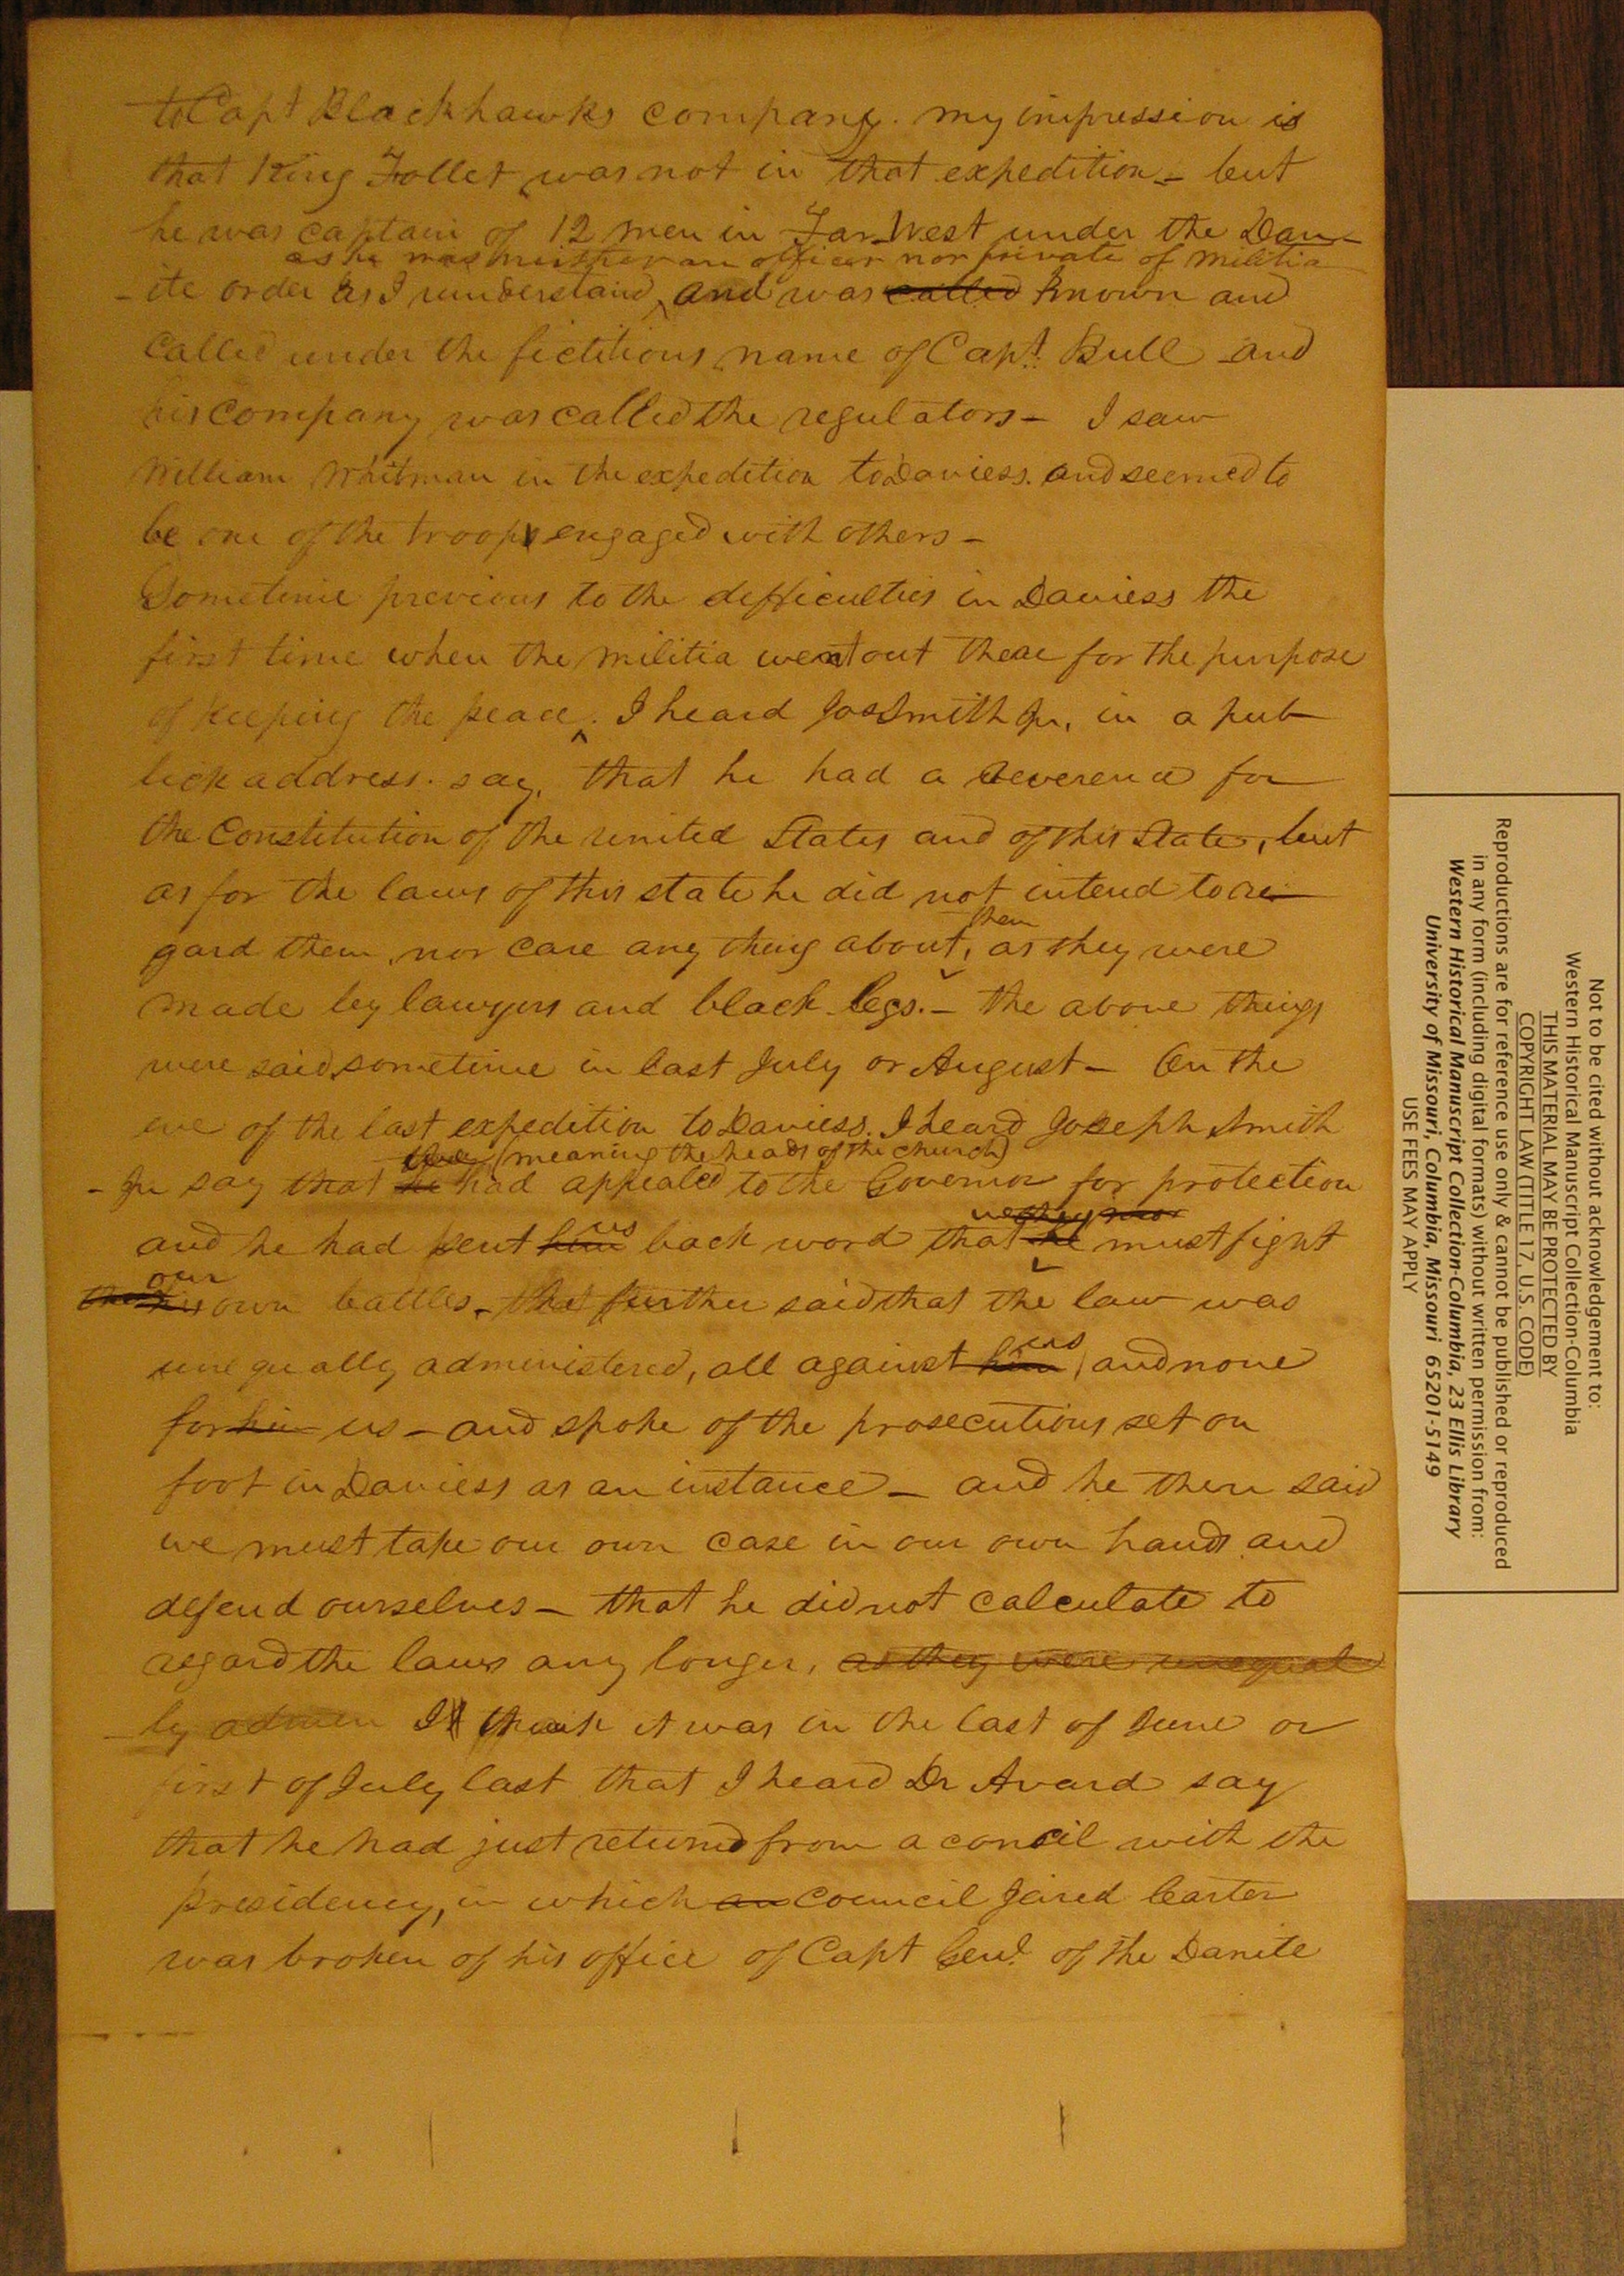 to Capt Blackhawks company. my impression is
that King Follet was not in that expedition - but
he was captain of 12 men in Far West under the Dan-
as he was neither an officer nor private of militia
-ite order as I understand, and was called known and
called under the fictitious name of Capt. Bull and
his company was called the regulators - I saw
William Whitman in the expedition to Daviess. and seemed to
be one of the troops engaged with others -
Sometime previous to the difficulties in Daviess the
first time when the militia went out there for the purpose
of keeping the peace. I heard Jos Smith Jr, in a pub-
lick address. say, that he had a reverence for
the Constitution of the united States and of this State, but
as for the laws of this state he did not intend to re-
them
gard them, nor care any thing about, as they were
made by lawyers and black legs. - the above things
were said sometime in last July or August - On the
eve of the last expedition to Daviess. I heard Joseph Smith
they (meaning the heads of the church)
- Jr say that he had appealed to the Governor for protection
we they
us
and he had sent him back word that he must fight
our
his own battles. - that further said that the law was
us
unequally administered, all against him, and none
for him us - and spoke of the prosecutions set on
foot in Daviess as an instance - and he then said
we must take our own case in our own hands and
defend ourselves - that he did not calculate to
regard the laws any longer, as they were unequal
-ly admin I think it was in the last of June or
first of July last that I heard Dr Avard say
that he had just returned from a concil with the
presidency, in which an council Jared Carter
was broken of his office of Capt Genl. of the Danite
Not to be cited without acknowledgement to:
Western Historical Manuscript Collection-Columbia
THIS MATERIAL MAY BE PROTECTED BY
COPYRIGHT LAW (TITLE 17, U.S. CODE)
Reproductions are for reference use only & cannot be published or reproduced
in any form (including digital formats) without written permission from:
Western Historical Manuscript Collection-Columbia, 23 Ellis Library
University of Missouri, Columbia, Missouri 65201-5149
USE FEES MAY APPLY